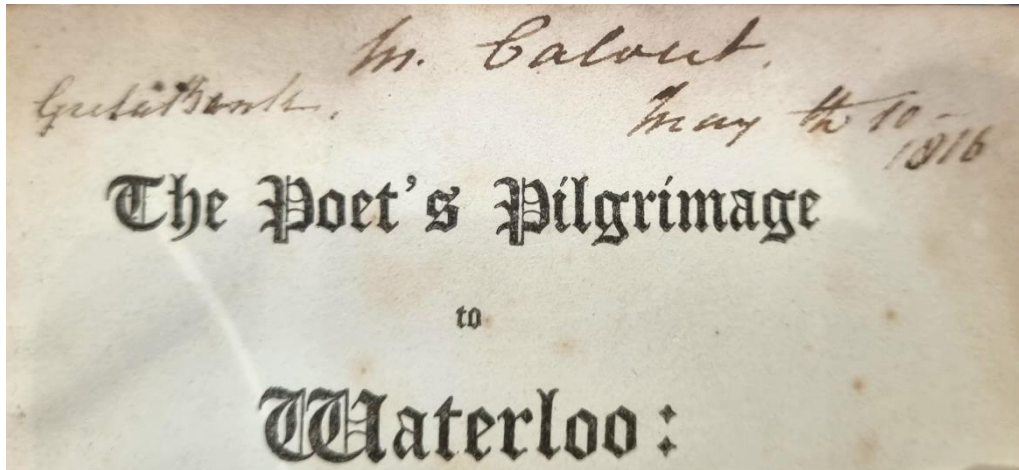 M. Calvert.
Greta Bank.
May th 10 -
1816
The Poet's Pilgrimage
to
Waterloo: